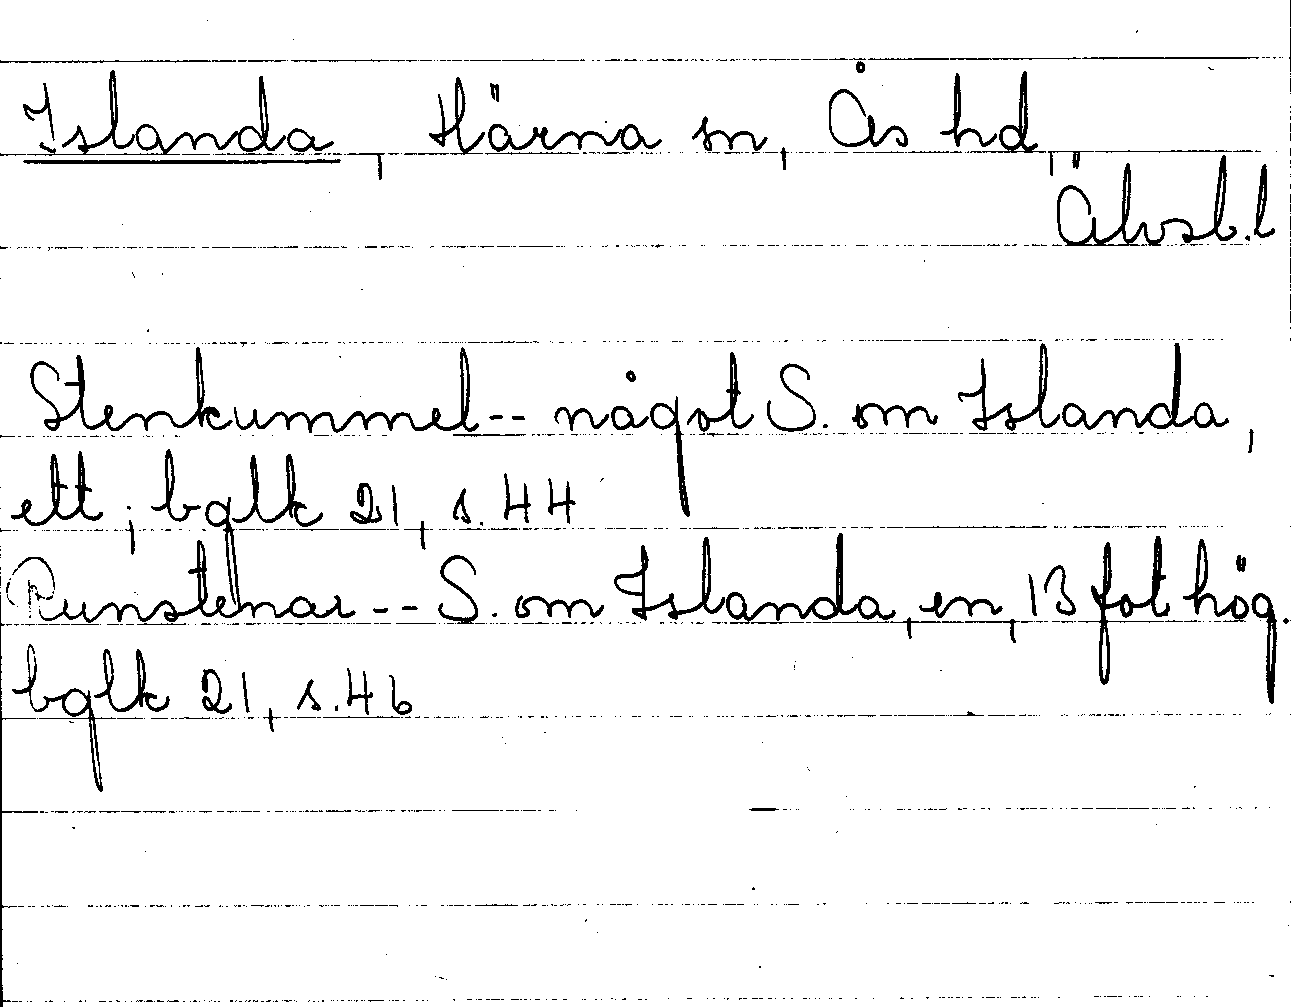 Islanda, Härna sn, Ås hd,
Älvsb.l
Stenkummel-- något S. om Islanda,
ett; bglk 21, s. 44
Runstenar -- S. om Islanda, en, 13 fot hög.
bglk 21, s. 46